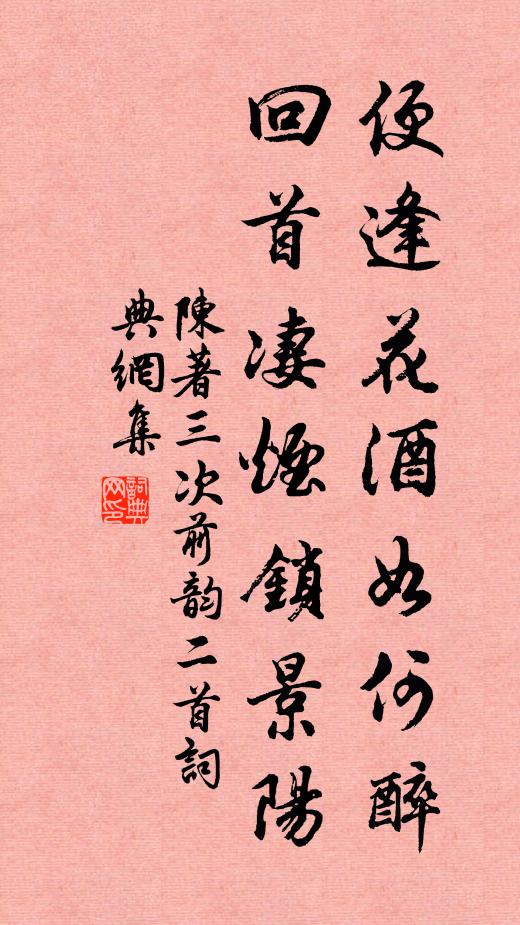 便逢花酒如何醉
回首凄煙鎖景陽
陳著三次前韵二首詞
典網集
詞典網印